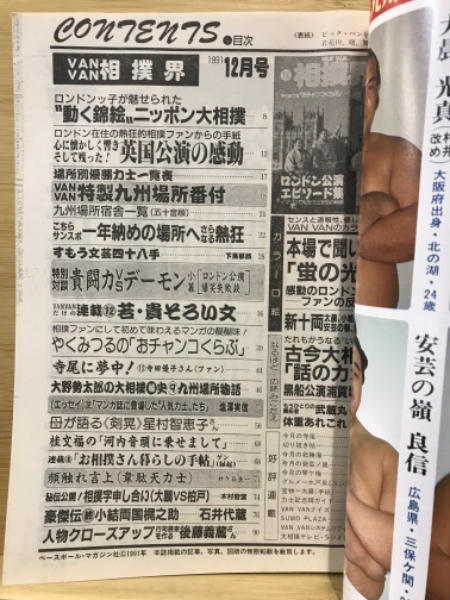 CONTENTS ●目次
VAN VAN 相撲界 1991 12月号
ロンドンッ子が魅せられた
"動く錦絵"ニッポン大相撲 8
ロンドン在住の熱狂的相撲ファンからの手紙
心に懐かしく響き そして残った! 英国公演の感動 12
場所別優勝力士一覧表 17
VAN VAN 特製九州場所番付 18
九州場所宿舎一覧(五十音順) 21
こちらサンスポ 一年納めの場所へさらなる熱狂 22
すもう文芸四十八手
特別対談 貴闘力VSデーモン小暮
[ロンドン公演 爆笑失敗談]
VANVANだけの 連載⑫ 若・貴そろい文 36
相撲ファンにして初めて味わえるマンガの醍醐味!
やくみつるの「おチャンコくらぶ」
寺尾に夢中!
寺田優子さん(ファン) 44
大野勢太郎の大相撲㊙史 九州場所物語 46
(エッセイ) マンガ誌に登場した"人気力士"たち 塩澤実信
母が語る《剣晃》星村智恵子さん
桂文福の「河内音頭に乗せまして」
「お相撲さん暮らしの手帖」
顔触れ言上(韋駄天力士)
秘伝公開/相撲字申し合い(大鵬VS柏戸)
豪傑伝 小結両国梶之助 石井代蔵 76
人物クローズアップ 後藤義蔵さん 90
ベースボール・マガジン社©1991年 本誌掲載の記事、写真、図版の無断転載を厳禁します。
(表紙) ビッグ・ベンを
相撲
ロンドン公演
エピソード集
カラー口絵
本場で聞い
「蛍の光
感動のロンドン
ファンの反
新十両
古今大相
「話の力
黒船公演浦賀
武蔵丸
体重あれこれ
好評連載
今月の寺尾
切り抜き帖
今月の北勝海
今月の安芸ノ島
今月の琴ヶ梅
力士記念碑ガイド
VAN VANクイズ
SUMO PLAZA
大相撲テレビ・ラジオ
光真
改め
大阪府出身・北の湖・24歳
安芸の嶺 良信
広島県・三保ケ関・